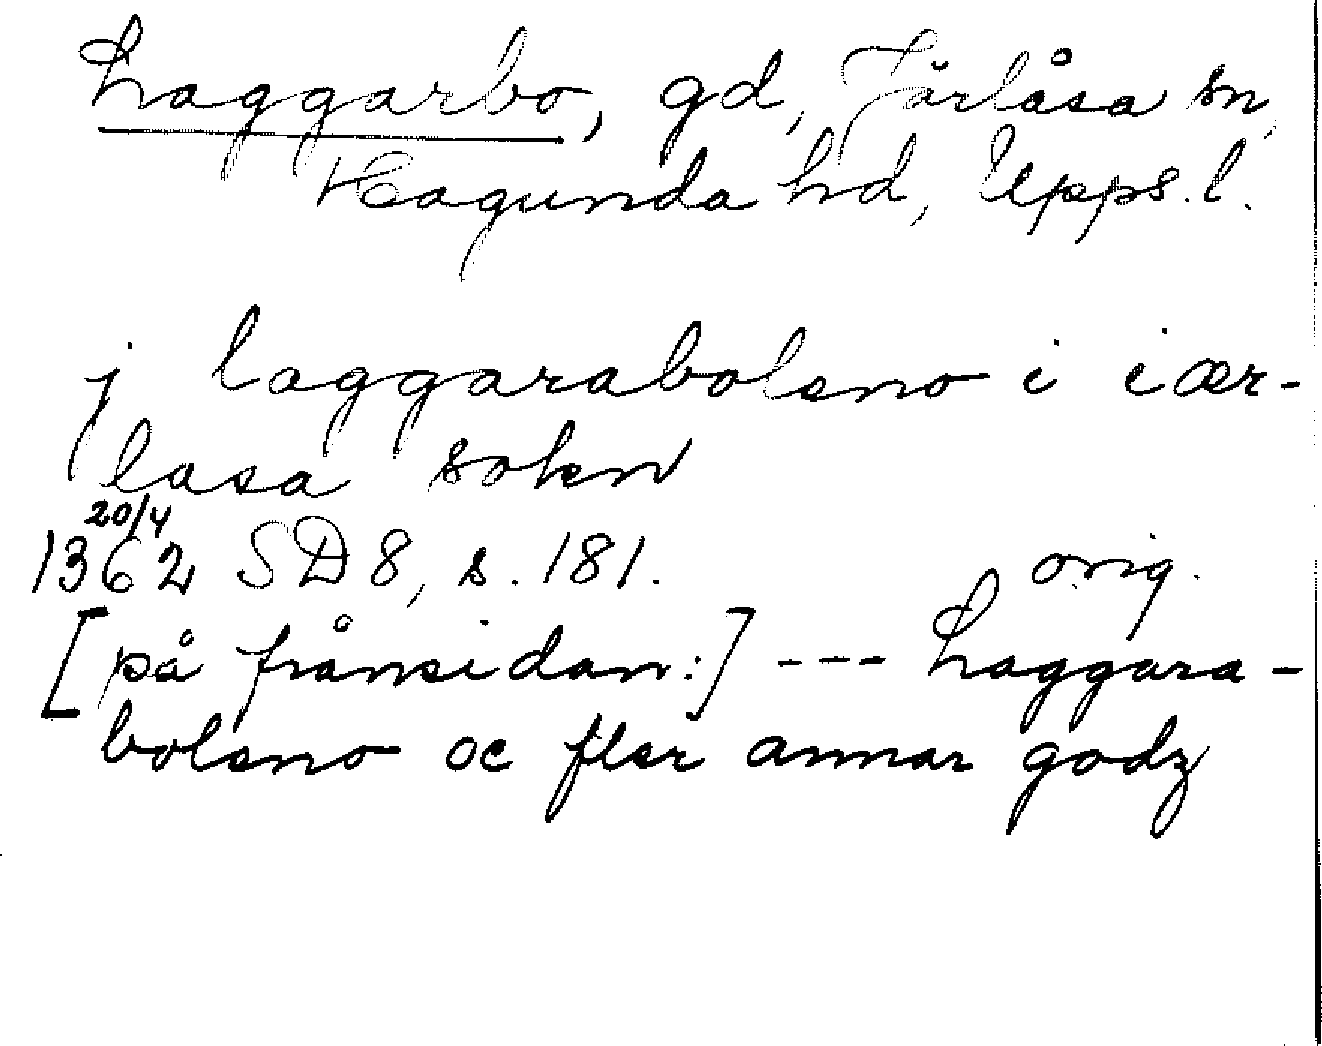 Laggarbo, gd, Järlåsa sn,
Hagunda hd, Upps. l.
j laggaraboleno i iær-
lasa sokn
20/4
1362 SD 8, s. 181. orig.
[på frånsidan:] --- Laggara-
boleno oc fler annar godz